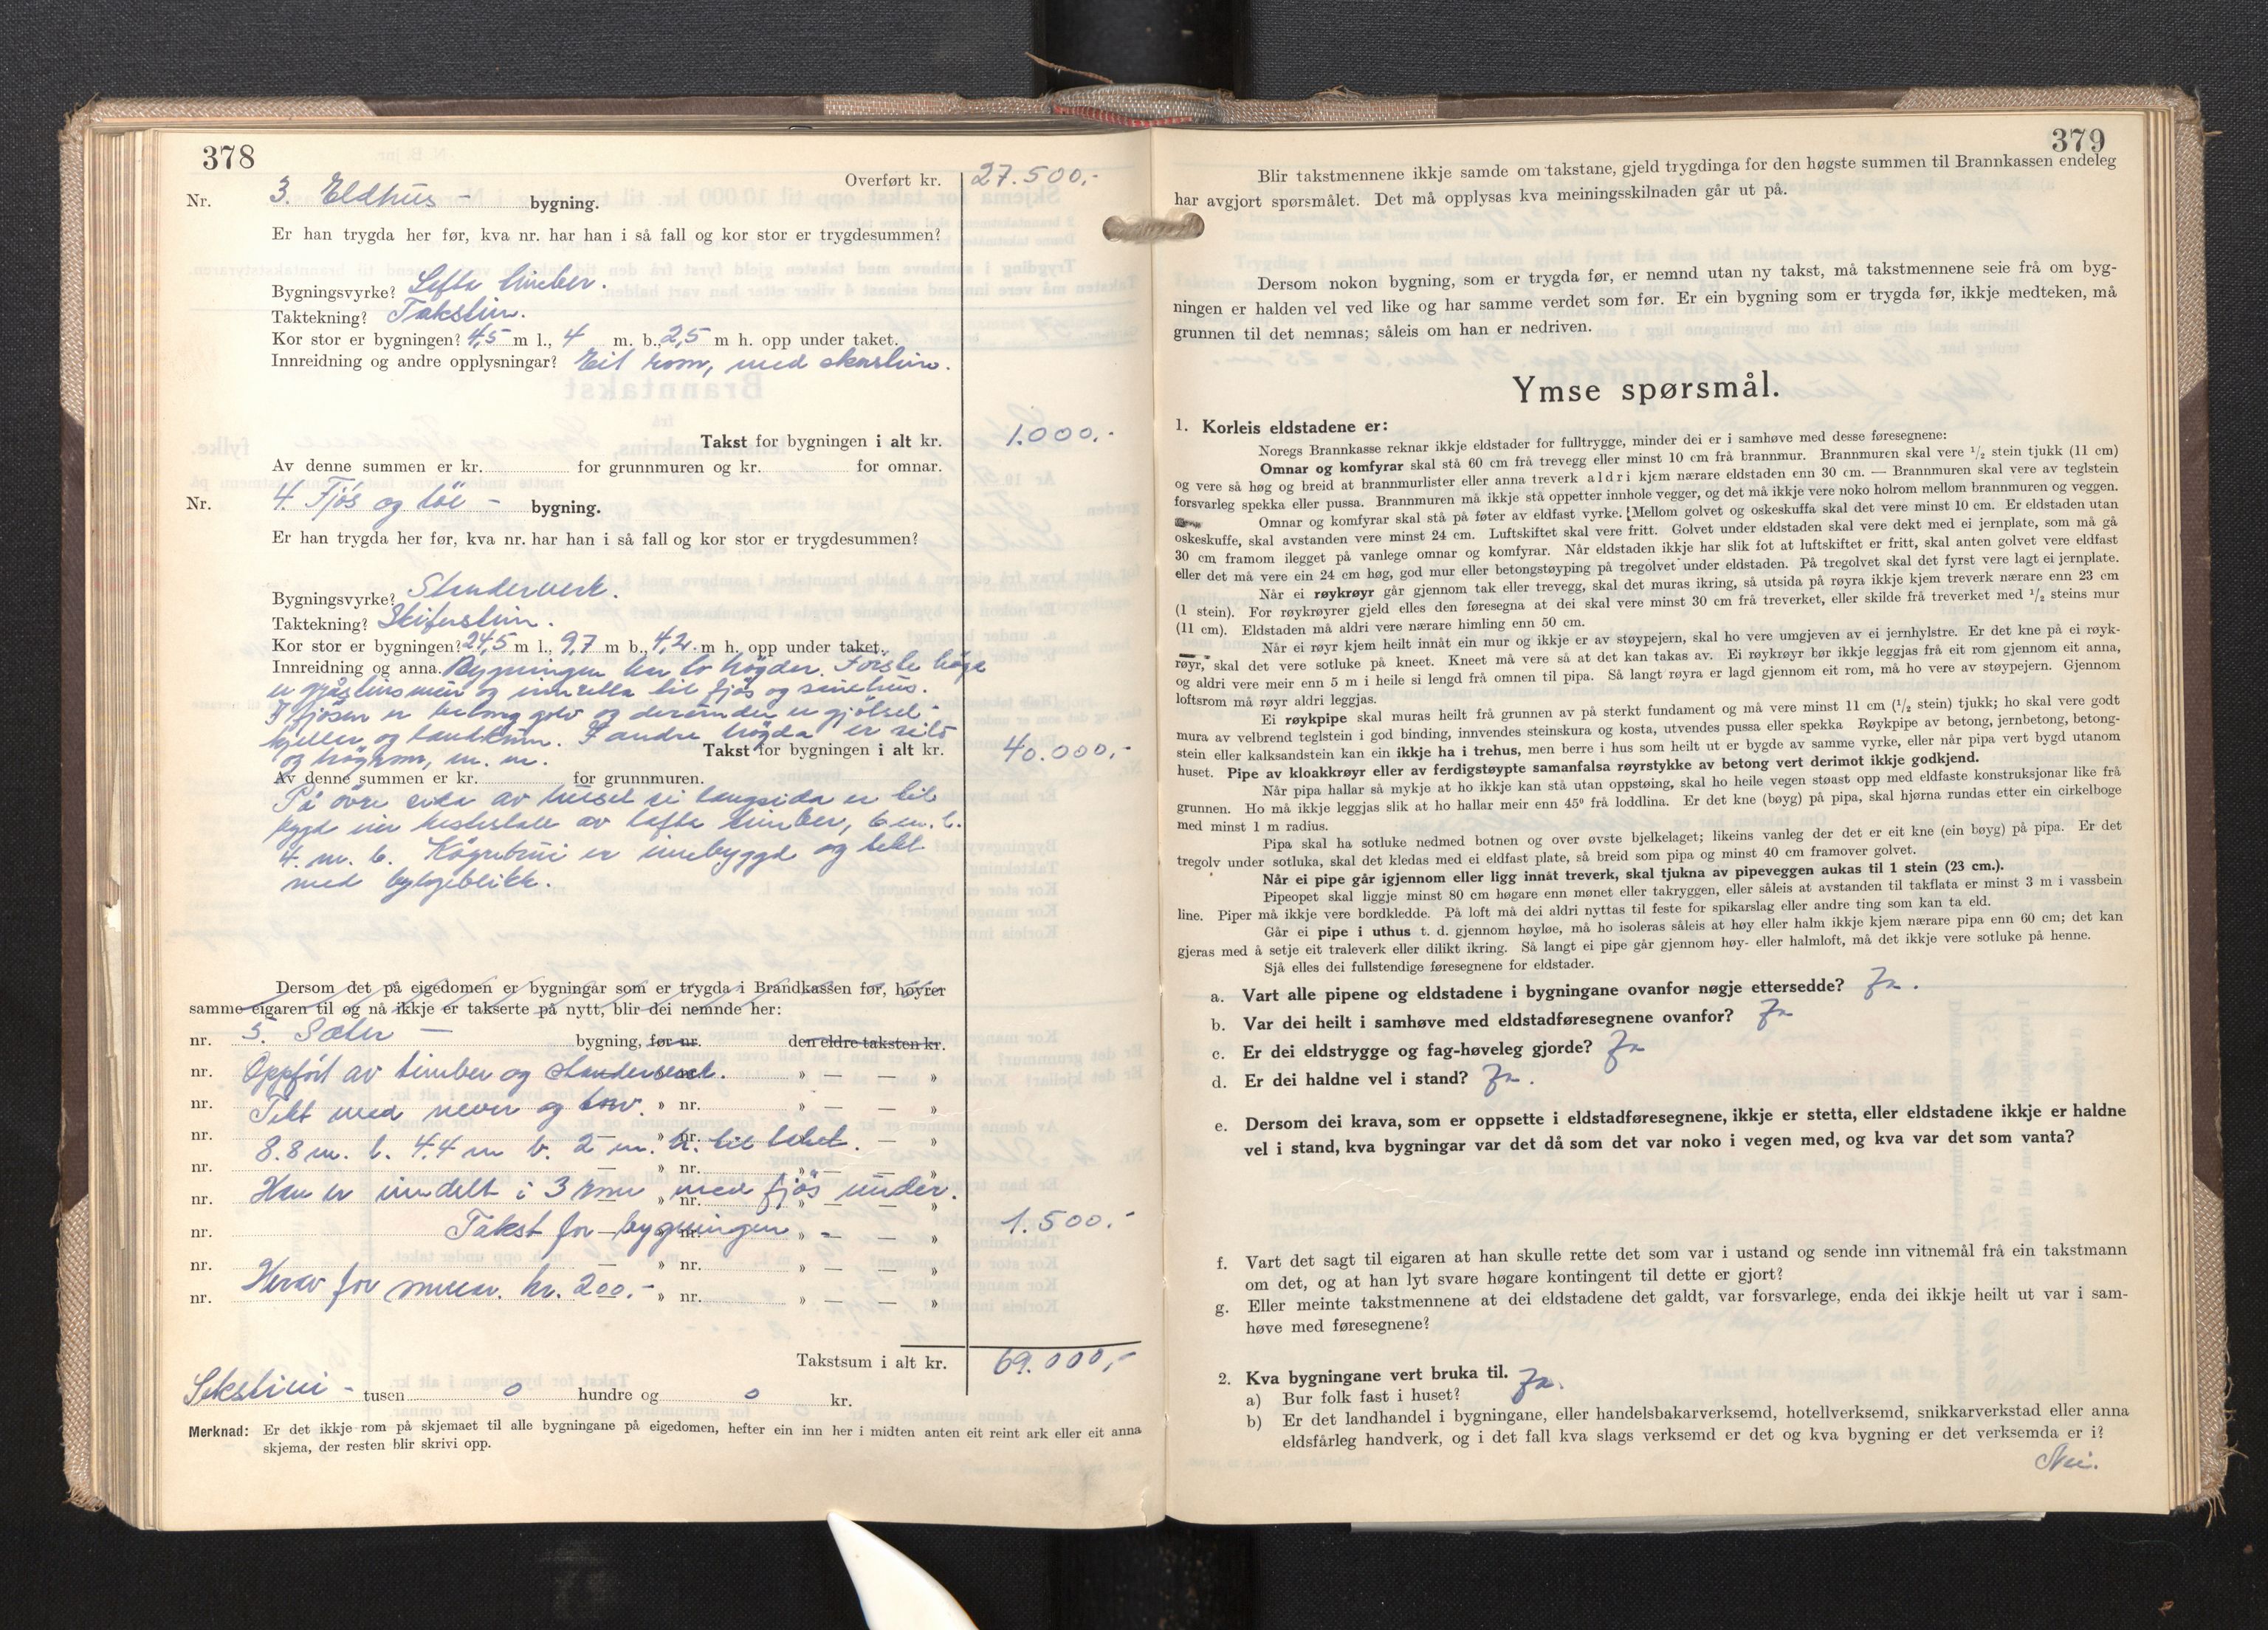 378
Overført kr. 27.500,-
Nr. 3. Eldhus - bygning.
Er han trygda her før, kva nr. har han i så fall og kor stor er trygdesummen?
Bygningsvyrke? Lafta timber.
Taktekning? Takstein.
Kor stor er bygningen? 4,5 m l., 4 m. b., 2,5 m h. opp under taket.
Innreidning og andre opplysningar? Eit rom, med skorstein.
Takst for bygningen i alt kr. 1.000.-
Av denne summen er kr. for grunnmuren og kr. for omnar.
Nr. 4. Fjös og löe - bygning.
Er han trygda her før, kva nr. har han i så fall og kor stor er trygdesummen?
Bygningsvyrke? Stenderverk.
Taktekning? Skiferstein.
Kor stor er bygningen? 24,5 m l., 9,7 m b., 4,2. m h. opp under taket.
Innreidning og anna. Bygningen har to högder. Förste högd
er gråsteinsmur og innreidd til fjös og sauehus.
I fjösen er betong golv og derunder er gjödsel-
kjeller og landkum. I andre högda er silo
og höyrom, m. m.
Takst for bygningen i alt kr. 40.000,-
Av denne summen er kr. for grunnmuren.
På övre sida av huset ei langsida er til-
bygd ein heststall av lafta timber, 6 m. l.
4. m. b. Köyrebrui er innebyggd og tekt
med bylgjeblikk.
Dersom det på eigedomen er bygningar som er trygda i Brandkassen før, høyrer
samme eigaren til og nå ikkje er takserte på nytt, blir dei nemnde her:
nr. 5. Sæter - bygning, før nr. den eldre taksten kr.
nr. Oppfört av timber og stenderverk. » — — »
nr. Tekt med never og torv. » nr. » — — »
nr. 8.8 m. l. 4.4 m b. 2 m. h. til taket. — »
nr. — » nr. » — — »
nr. Han er inndelt i 3 rom med fjös under. »
nr. Takst for bygningen » - — » 1.500.-
nr. — » nr. » — — »
nr. Herav for muren kr. 200.- » nr. » — — »
Takstsum i alt kr. 69.000,-
Sekstini - tusen 0 hundre og 0 kr.
Merknad: Er det ikkje rom på skjemaet til alle bygningane på eigedomen, hefter ein inn her i midten anten eit reint ark eller eit anna
skjema, der resten blir skrivi opp.
379
Blir takstmennene ikkje samde om takstane, gjeld trygdinga for den høgste summen til Brannkassen endeleg
har avgjort spørsmålet. Det må opplysas kva meiningsskilnaden går ut på.
Dersom nokon bygning, som er trygda før, er nemnd utan ny takst, må takstmennene seie frå om byg-
ningen er halden vel ved like og har samme verdet som før. Er ein bygning som er trygda før, ikkje medteken, må
grunnen til det nemnas; såleis om han er nedriven.
Ymse spørsmål.
1. Korleis eldstadene er:
Noregs Brannkasse reknar ikkje eldstader for fulltrygge, minder dei er i samhøve med desse føresegnene:
Omnar og komfyrar skal stå 60 cm frå trevegg eller minst 10 cm frå brannmur. Brannmuren skal vere 1/2 stein tjukk (11 cm)
og vere så høg og breid at brannmurlister eller anna treverk aldri kjem nærare eldstaden enn 30 cm. — Brannmuren skal vere av teglstein
forsvarleg spekka eller pussa. Brannmuren må ikkje stå oppetter innhole vegger, og det må ikkje vere noko holrom mellom brannmuren og veggen.
Omnar og komfyrar skal stå på føter av eldfast vyrke. [Mellom golvet og oskeskuffa skal det vere minst 10 cm. Er eldstaden utan
oskeskuffe, skal avstanden vere minst 24 cm. Luftskiftet skal vere fritt. Golvet under eldstaden skal vere dekt med ei jernplate, som må gå
30 cm framom ilegget på vanlege omnar og komfyrar. Når eldstaden ikkje har slik fot at luftskiftet er fritt, skal anten golvet vere eldfast
eller det må vere ein 24 cm høg, god mur eller betongstøyping på tregolvet under eldstaden. På tregolvet skal det fyrst vere lagt ei jernplate.
Når ei røykrøyr går gjennom tak eller trevegg, skal det muras ikring, så utsida på røyra ikkje kjem treverk nærare enn 23 cm
(1 stein). For røykrøyrer gjeld elles den føresegna at dei skal vere minst 30 cm frå treverket, eller skilde frå treverket med 1/2 steins mur
(11 cm). Eldstaden må aldri vere nærare himling enn 50 cm.
Når ei røyr kjem heilt innåt ein mur og ikkje er av støypejern, skal ho vere umgjeven av ei jernhylstre. Er det kne på ei røyk-
røyr, skal det vere sotluke på kneet. Kneet må vere så at det kan takas av. Ei røykrøyr bør ikkje leggjas frå eit rom gjennom eit anna,
og aldri vere meir enn 5 m i heile si lengd frå omnen til pipa. Så langt røyra er lagd gjennom eit rom, må ho vere av støypejern. Gjennom
loftsrom må røyr aldri leggjas.
Ei røykpipe skal muras heilt frå grunnen av på sterkt fundament og må vere minst 11 cm (1/2 stein) tjukk; ho skal vere godt
mura av velbrend teglstein i god binding, innvendes steinskura og kosta, utvendes pussa eller spekka Røykpipe av betong, jernbetong, betong-
stein eller kalksandstein kan ein ikkje ha i trehus, men berre i hus som heilt ut er bygde av samme vyrke, eller når pipa vert bygd utanom
huset. Pipe av kloakkrøyr eller av ferdigstøypte samanfalsa røyrstykke av betong vert derimot ikkje godkjend.
Når pipa hallar så mykje at ho ikkje kan stå utan oppstøing, skal ho heile vegen støast opp med eldfaste konstruksjonar like frå
grunnen. Ho må ikkje leggjas slik at ho hallar meir enn 45º frå loddlina. Er det kne (bøyg) på pipa, skal hjørna rundas etter ein cirkelboge
med minst 1 m radius.
Pipa skal ha sotluke nedmed botnen og over øvste bjelkelaget; likeins vanleg der det er eit kne (ein bøyg) på pipa. Er det
tregolv under sotluka, skal det kledas med ei eldfast plate, så breid som pipa og minst 40 cm framover golvet.
Når ei pipe går igjennom eller ligg innåt treverk, skal tjukna av pipeveggen aukas til 1 stein (23 cm.).
Pipeopet skal liggje minst 80 cm høgare enn mønet eller takryggen, eller såleis at avstanden til takflata er minst 3 m i vassbein
line. Piper må ikkje vere bordkledde. På loft må dei aldri nyttas til feste for spikarslag eller andre ting som kan ta eld.
Går ei pipe i uthus t. d. gjennom høyløe, må ho isoleras såleis at høy eller halm ikkje kjem nærare pipa enn 60 cm; det kan
gjeras med å setje eit traleverk eller dilikt ikring. Så langt ei pipe går gjennom høy- eller halmloft, må det ikkje vere sotluke på henne.
Sjå elles dei fullstendige føresegnene for eldstader.
a. Vart alle pipene og eldstadene i bygningane ovanfor nøgje ettersedde? Ja.
b. Var dei heilt i samhøve med eldstadføresegnene ovanfor? Ja
c. Er dei eldstrygge og fag-høveleg gjorde? Ja
d. Er dei haldne vel i stand? Ja.
e. Dersom dei krava, som er oppsette i eldstadføresegnene, ikkje er stetta, eller eldstadene ikkje er haldne
vel i stand, kva bygningar var det då som det var noko i vegen med, og kva var det som vanta?
f. Vart det sagt til eigaren at han skulle rette det som var i ustand og sende inn vitnemål frå ein takstmann
om det, og at han lyt svare høgare kontingent til dette er gjort?
g. Eller meinte takstmennene at dei eldstadene det galdt, var forsvarlege, enda dei ikkje heilt ut var i sam-
høve med føresegnene?
2. Kva bygningane vert bruka til.
a) Bur folk fast i huset? Ja.
b) Er det landhandel i bygningane, eller handelsbakarverksemd, hotellverksemd, snikkarverkstad eller anna
eldsfårleg handverk, og i det fall kva slags verksemd er det og kva bygning er det verksemda er i?
Nei.